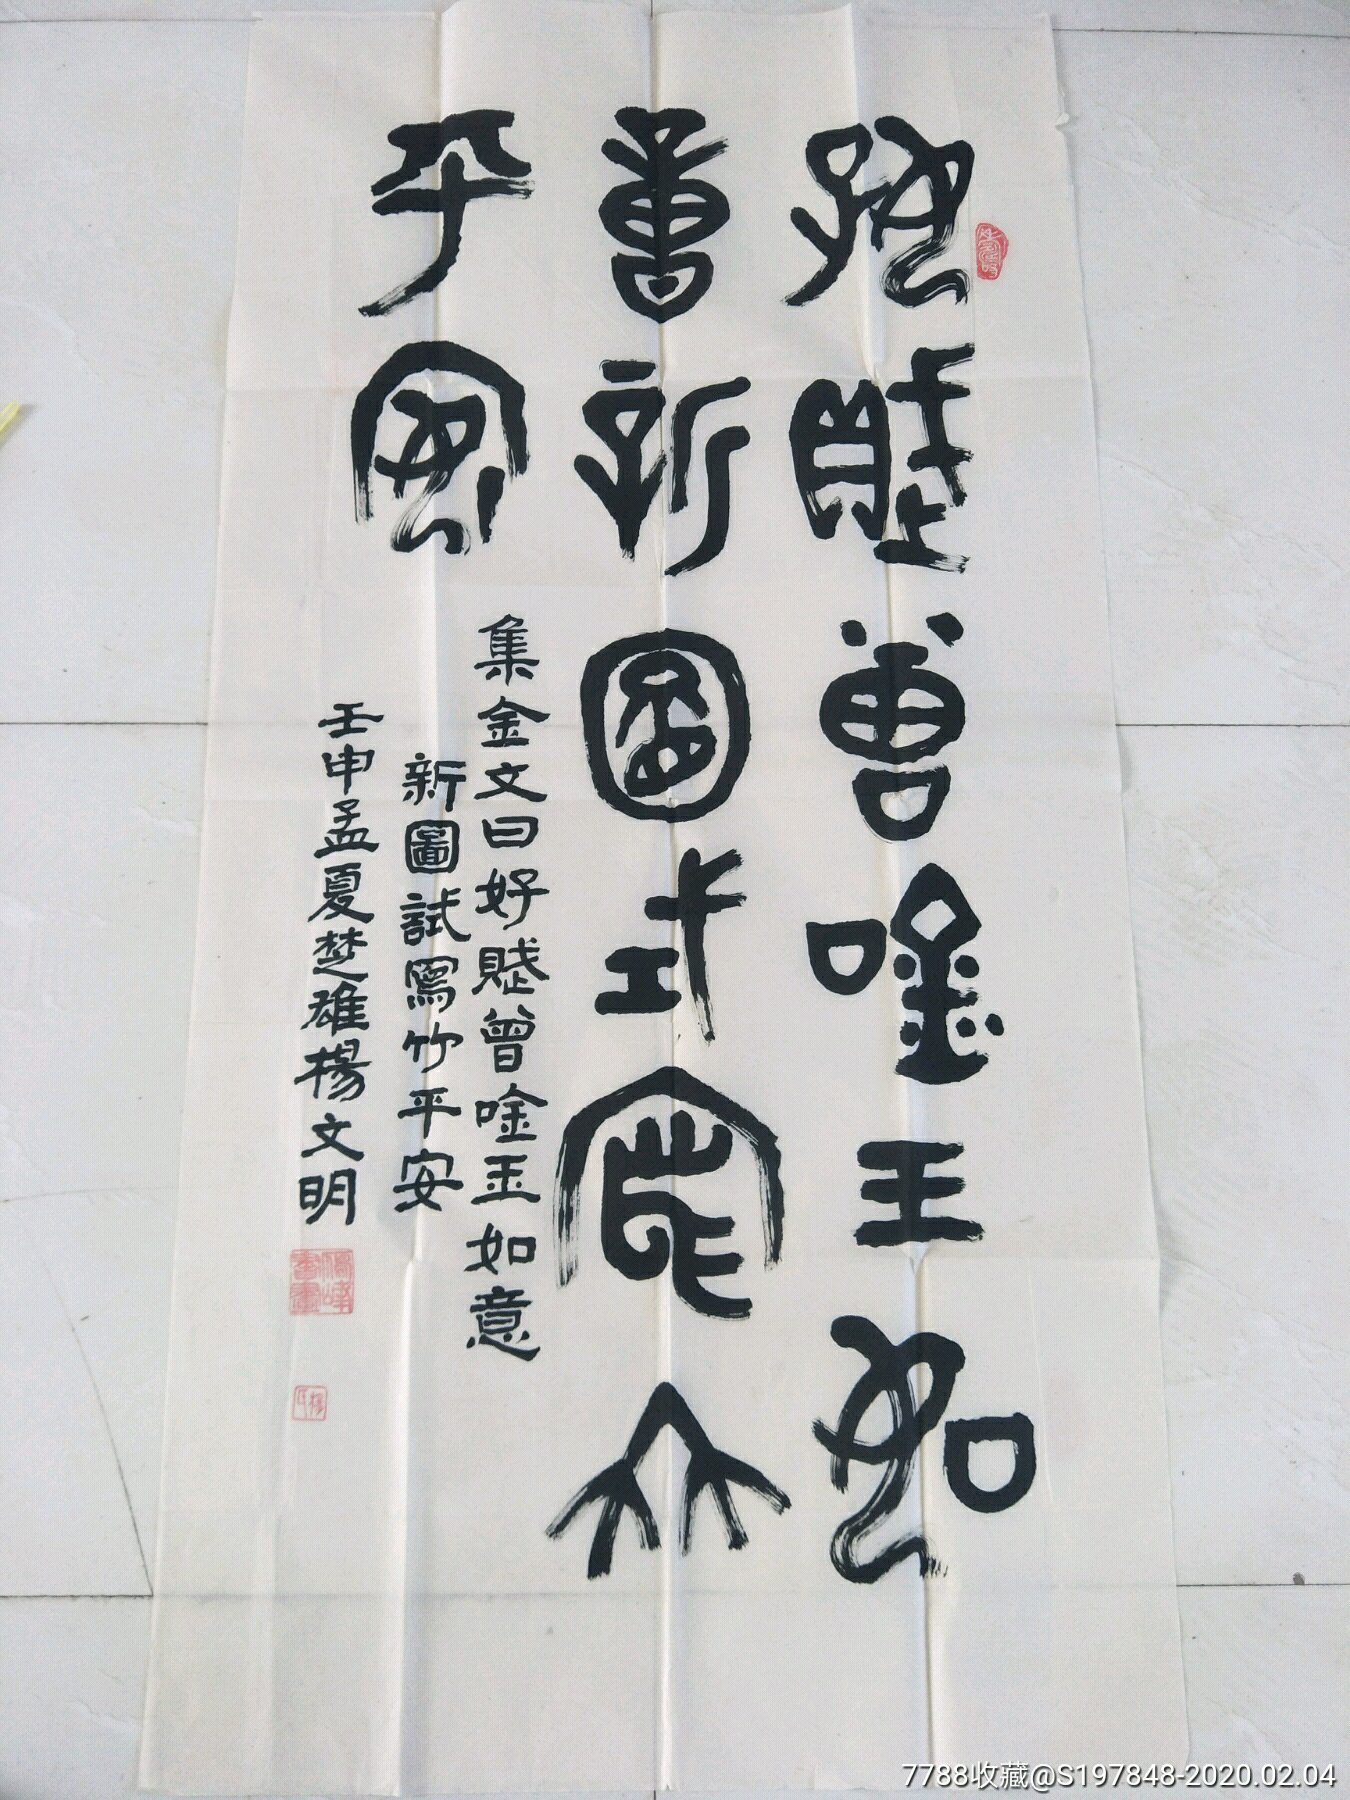 好賦曾唫玉如
意新圖試寫竹
平安
集金文曰好賦曾唫玉如意
新圖試寫竹平安
壬申孟夏楚雄楊文明
7788收藏@S197848-2020.02.04